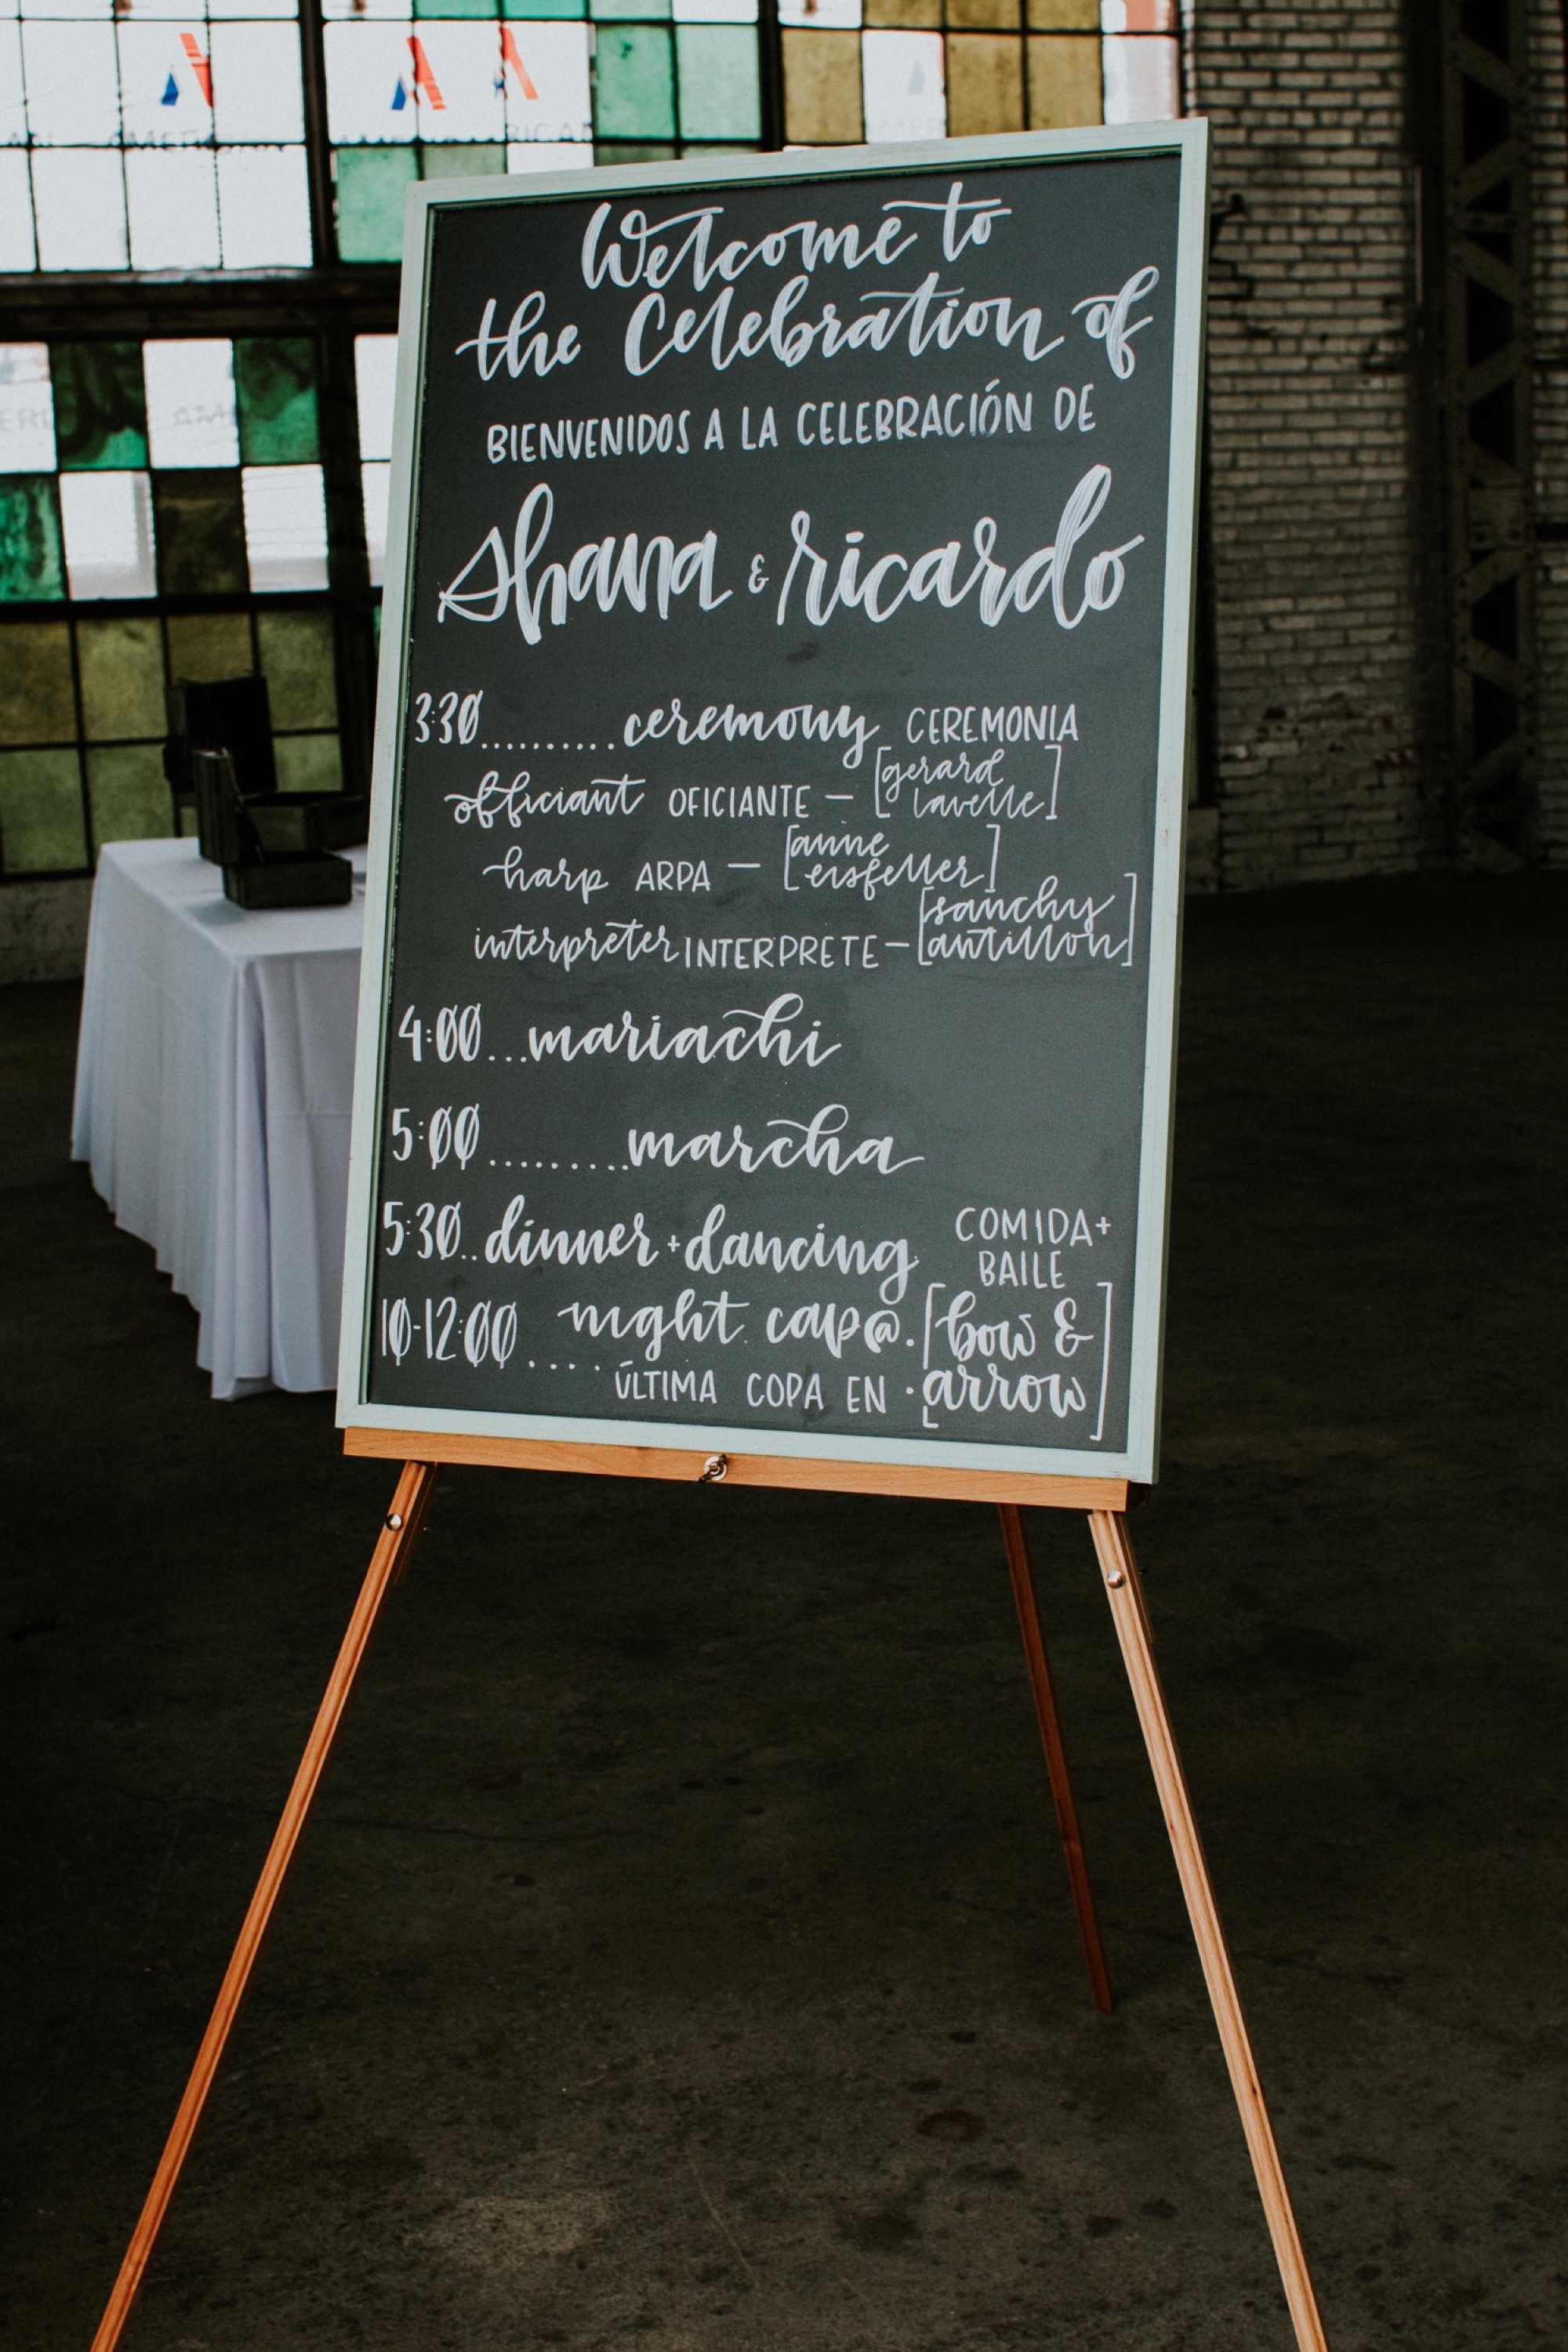 Welcome to
the Celebration of
BIENVENIDOS A LA CELEBRACIÓN DE
Shana & ricardo
3:30..........ceremony CEREMONIA
officiant OFICIANTE — [gerard
lavelle]
harp ARPA — [anne
eisfeller]
interpreter INTERPRETE — [sanchy
antillon]
4:00...mariachi
5:00.........marcha
5:30..dinner + dancing COMIDA+
BAILE
10-12:00.... night cap @ [bow &
ÚLTIMA COPA EN arrow]